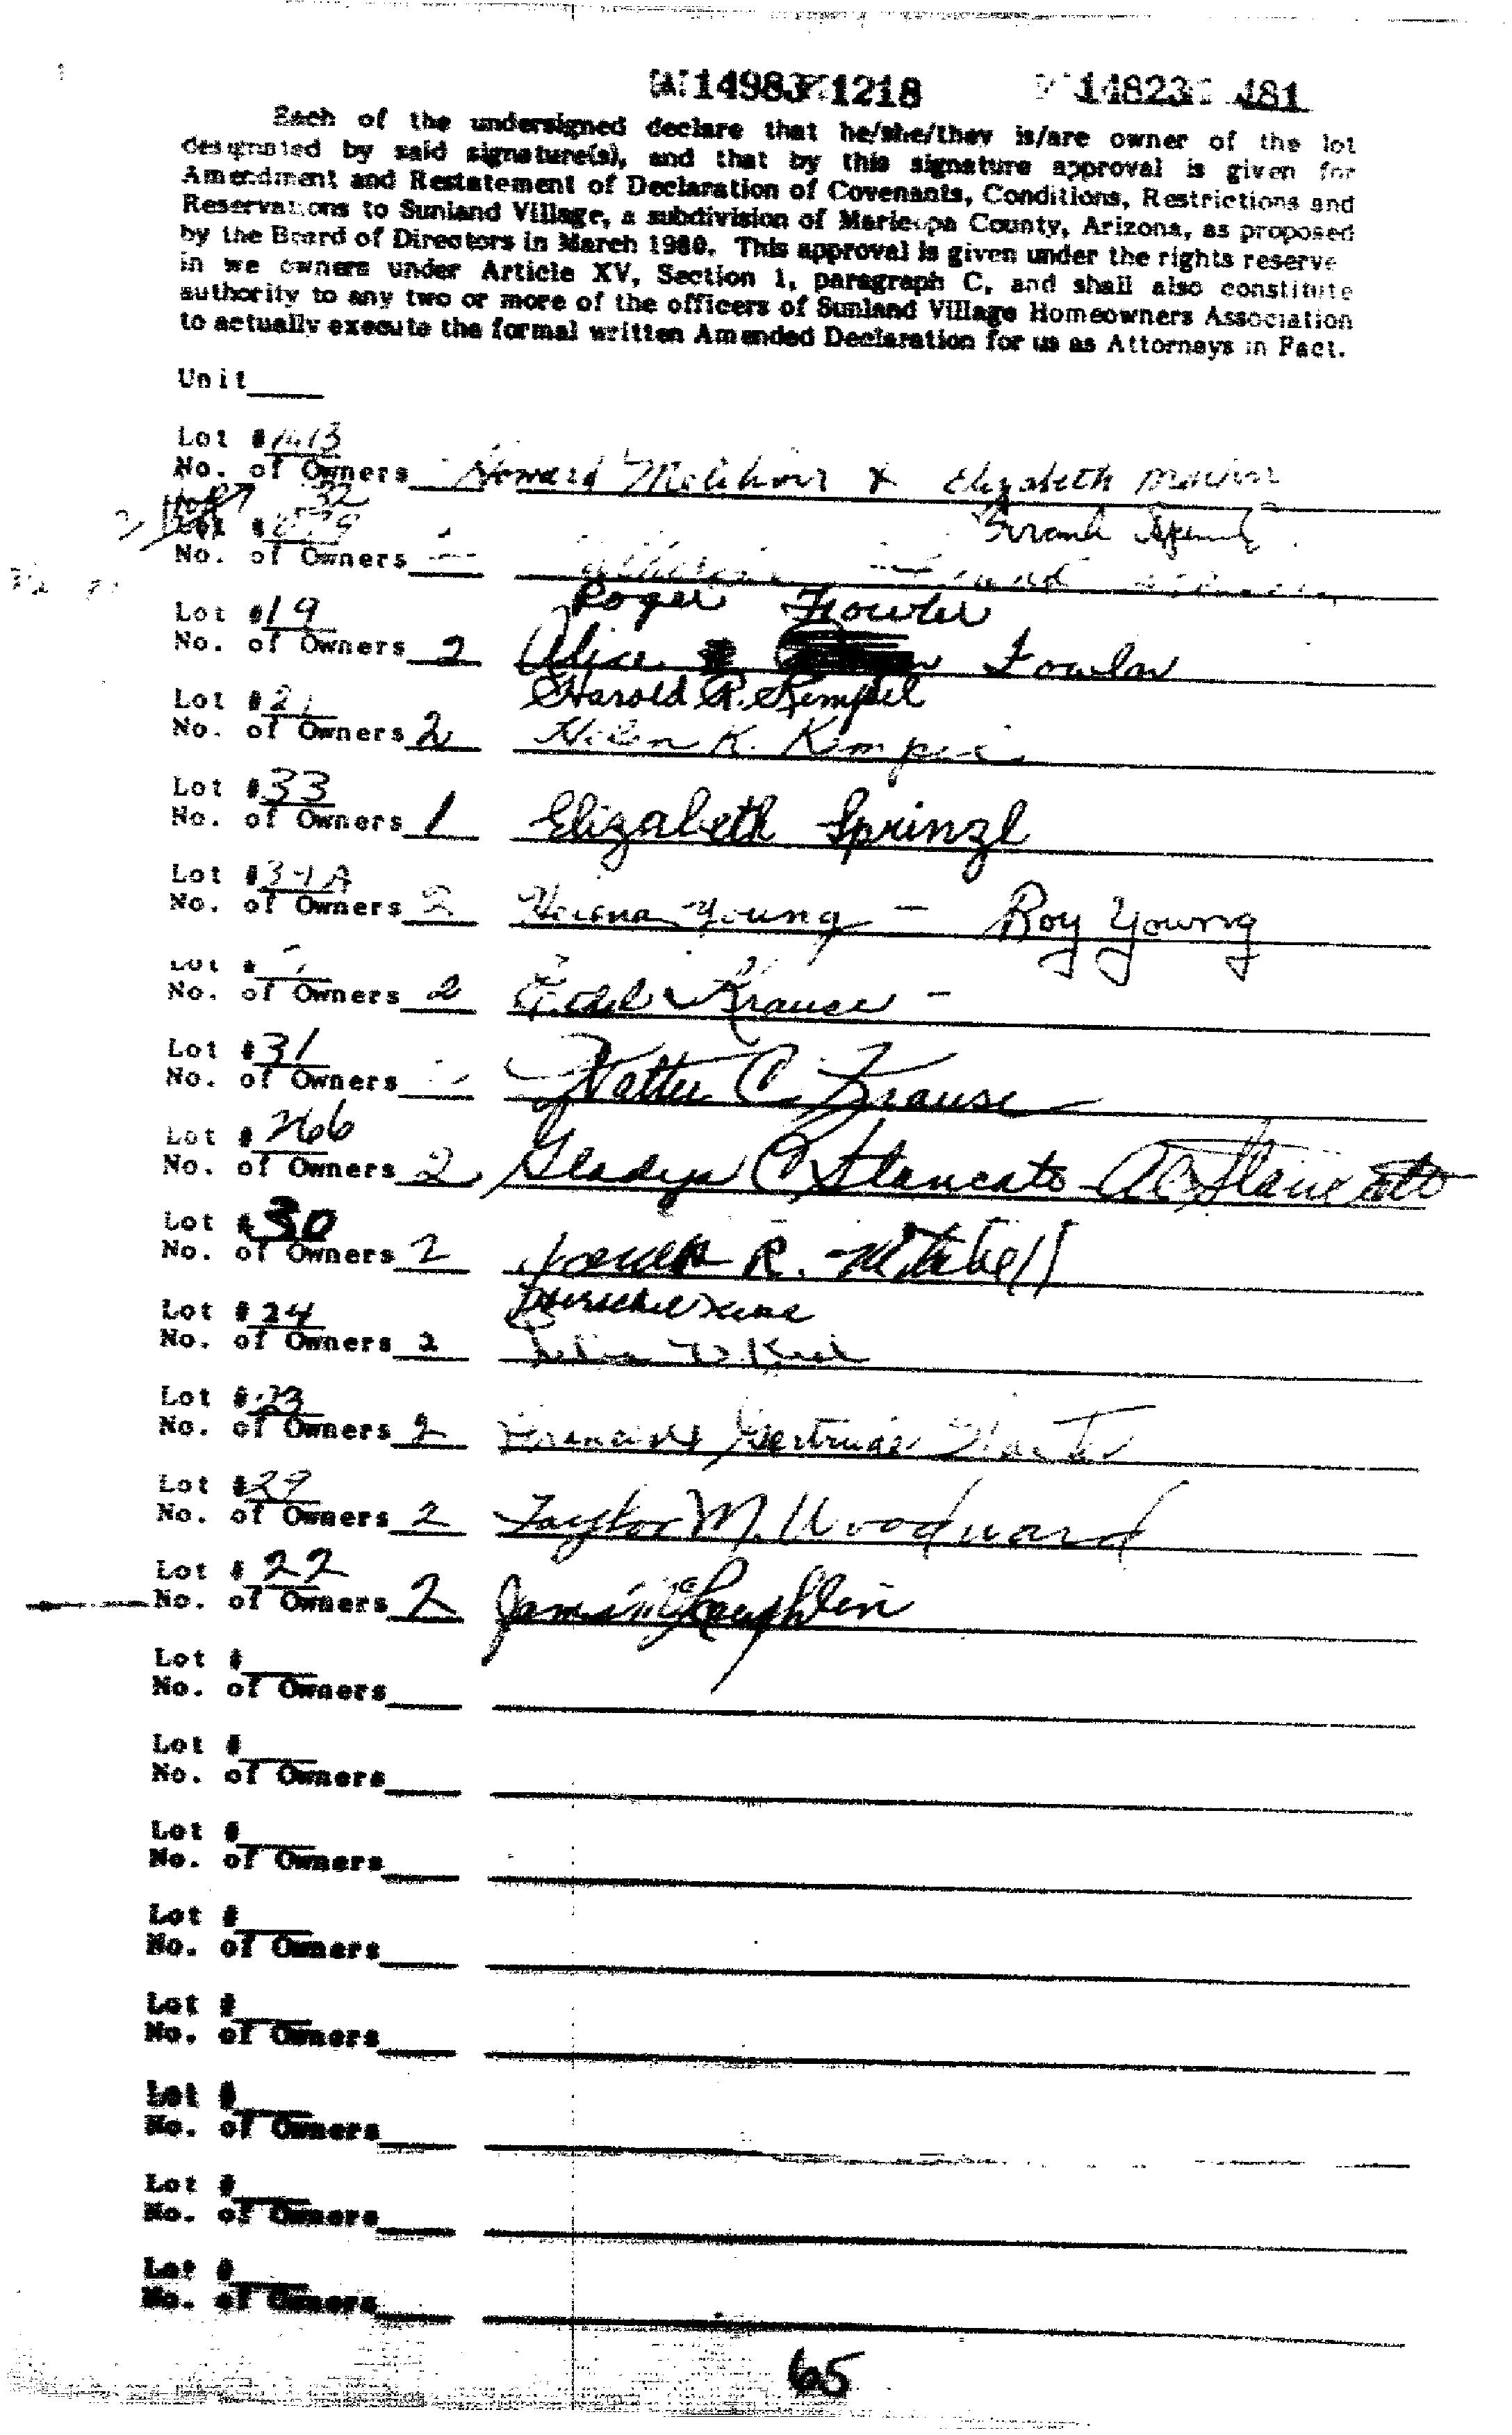 14983 1218 14823 481
Each of the undersigned declare that he/she/they is/are owner of the lot
designated by said signature(s), and that by this signature approval is given for
Amendment and Restatement of Declaration of Covenants, Conditions, Restrictions and
Reservations to Sunland Village, a subdivision of Maricopa County, Arizona, as proposed
by the Board of Directors in March 1980. This approval is given under the rights reserve
in we owners under Article XV, Section 1, paragraph C, and shall also constitute
authority to any two or more of the officers of Sunland Village Homeowners Association
to actually execute the formal written Amended Declaration for us as Attorneys in Fact.
Unit
Lot #
No. of Owners Howard & Elizabeth
32
Lot #
No. of Owners
Roger Fowler
Lot #19
No. of Owners 2 Alice Fowler
Harold R. Kempel
Lot #21
No. of Owners 2 Helen K.
Lot #33
No. of Owners 1 Elizabeth Sprinzl
Lot #
No. of Owners 2 Young - Roy Young
Lot #
No. of Owners 2 Krause -
Lot #31
No. of Owners Walter C. Krause
Lot #266
No. of Owners 2 Gladys C.
Lot #30
No. of Owners 2 R. Mitchell
Lot #24
No. of Owners 2
Lot #23
No. of Owners 2 Gertrude
Lot #29
No. of Owners 2 Taylor M. Woodward
Lot #22
No. of Owners 2 McLaughlin
Lot #
No. of Owners
Lot #
No. of Owners
Lot #
No. of Owners
Lot #
No. of Owners
Lot #
No. of Owners
Lot #
No. of Owners
Lot #
No. of Owners
Lot #
No. of Owners
65